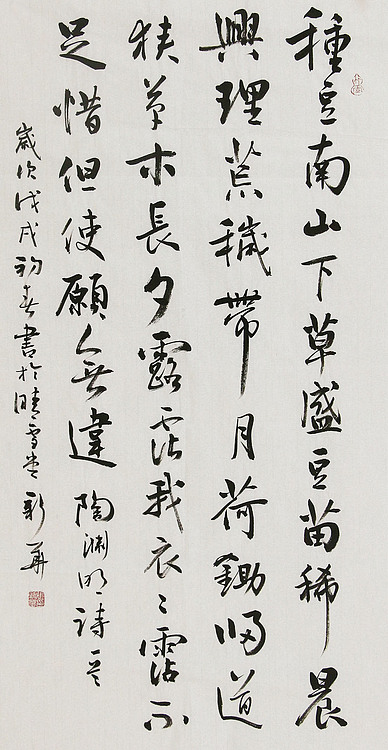 種豆南山下草盛豆苗稀晨
興理荒穢帶月荷鋤歸道
狹草木長夕露沾我衣〻霑不
足惜但使願無違 陶淵明詩一首
歲次戊戌初春書於晴雪堂新華